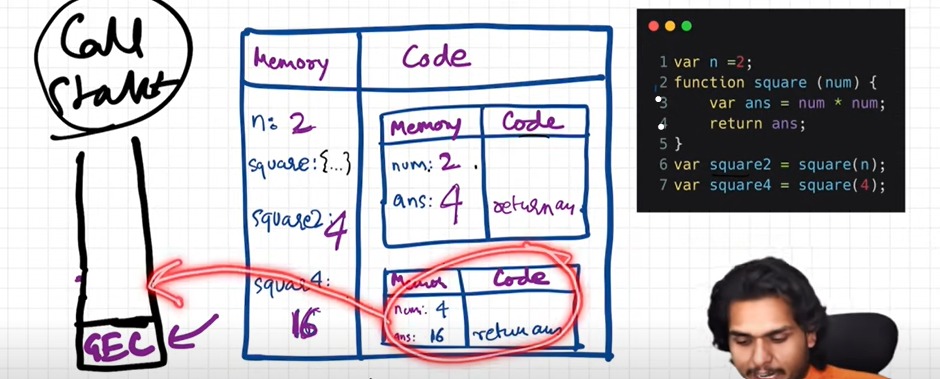 Call
Stack
GEC
Memory
Code
n: 2
square: {...}
square2: 4
square4:
16
Memory
Code
num: 2
ans: 4
return ans
Code
num: 4
ans: 16
return ans
1 var n =2;
2 function square (num) {
3 var ans = num * num;
4 return ans;
5 }
6 var square2 = square(n);
7 var square4 = square(4);